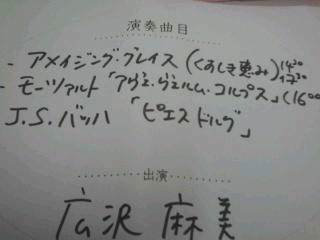 演奏曲目
- アメイジング・グレイス (くすしき恵み) 14³⁰ 17³⁰
- モーツァルト「アヴェ・ヴェルム・コルプス」(16⁰⁰
J.S.バッハ 「ピエスドルグ」
出演
広沢 麻美